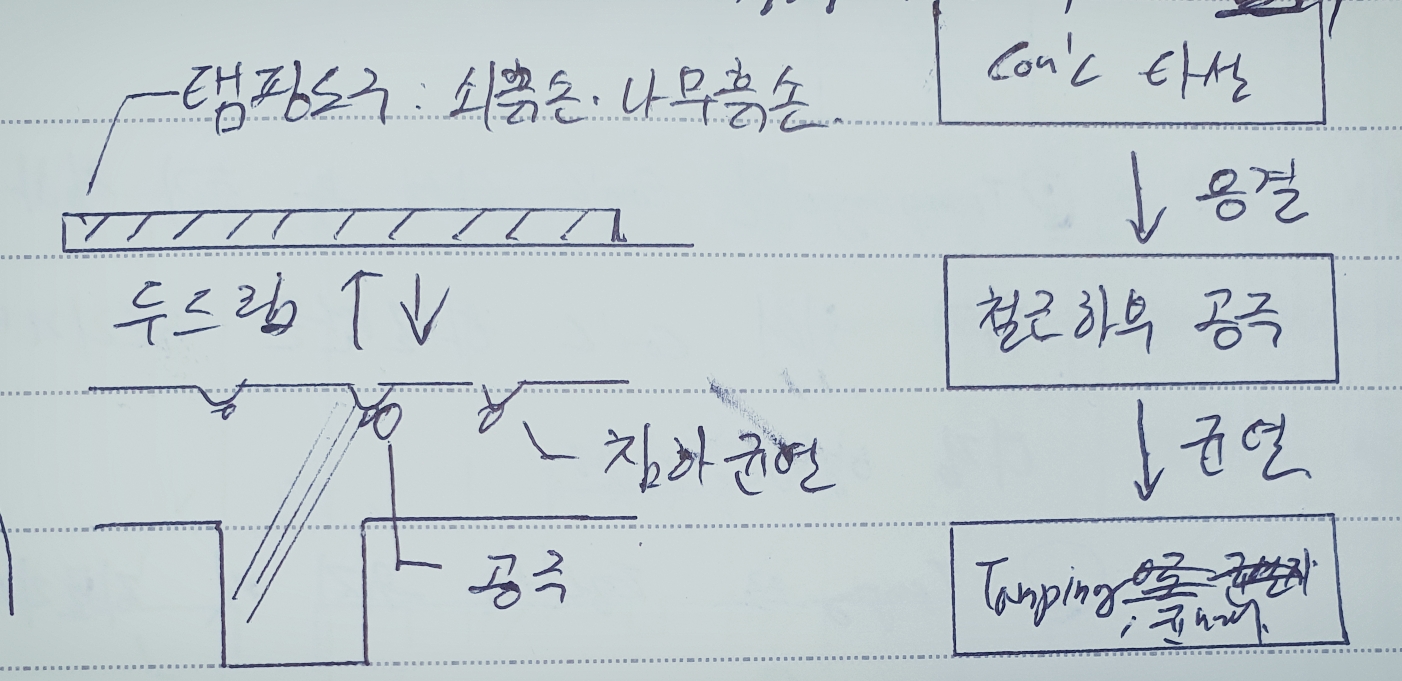 탬핑도구 : 쇠흙손. 나무흙손.
두드림 ↑↓
침하균열
공극
Con'c 타설
↓ 응결
철근하부 공극
↓ 균열
Tamping